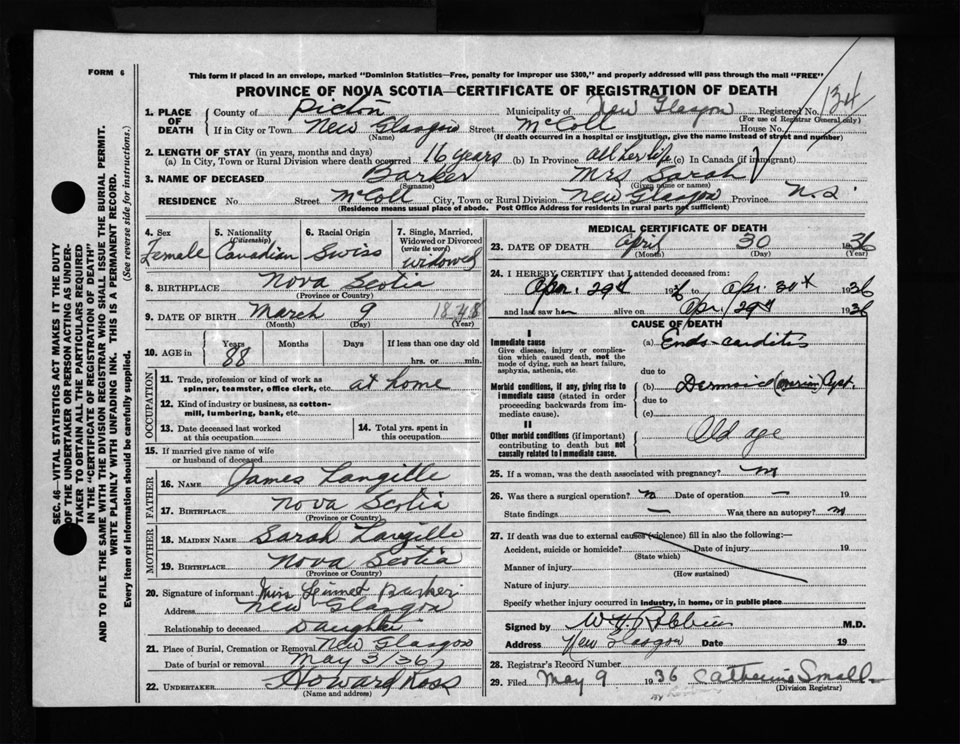 FORM 6
This form if placed in an envelope, marked "Dominion Statistics—Free, penalty for improper use $300," and properly addressed will pass through the mail "FREE"
PROVINCE OF NOVA SCOTIA—CERTIFICATE OF REGISTRATION OF DEATH
134
1. PLACE OF DEATH County of Pictou Municipality of New Glasgow Registered No.
(For use of Registrar General only)
If in City or Town New Glasgow Street McColl House No.
(Name) (If death occurred in a hospital or institution, give the name instead of street and number)
2. LENGTH OF STAY (in years, months and days)
(a) In City, Town or Rural Division where death occurred 16 years (b) In Province all her life (c) In Canada (if immigrant)
3. NAME OF DECEASED Barker Mrs Sarah
(Surname) (Given name or names)
RESIDENCE No. Street McColl City, Town or Rural Division New Glasgow Province N.S.
(Residence means usual place of abode. Post Office Address for residents in rural parts not sufficient)
4. Sex Female
5. Nationality (Citizenship) Canadian
6. Racial Origin Swiss
7. Single, Married, Widowed or Divorced (write the word) Widowed
8. BIRTHPLACE Nova Scotia
(Province or Country)
9. DATE OF BIRTH March 9 1848
(Month) (Day) (Year)
10. AGE in Years Months Days If less than one day old
88 hrs. or min.
OCCUPATION
11. Trade, profession or kind of work as spinner, teamster, office clerk, etc. at home
12. Kind of industry or business, as cotton-mill, lumbering, bank, etc.
13. Date deceased last worked at this occupation
14. Total yrs. spent in this occupation
15. If married give name of wife or husband of deceased
FATHER
16. NAME James Langille
17. BIRTHPLACE Nova Scotia
(Province or Country)
MOTHER
18. MAIDEN NAME Sarah Langille
19. BIRTHPLACE Nova Scotia
(Province or Country)
20. Signature of informant Miss Barker
Address New Glasgow
Relationship to deceased Daughter
21. Place of Burial, Cremation or Removal New Glasgow
Date of burial or removal May 3/36
22. UNDERTAKER Howard Ross
(Name and address)
MEDICAL CERTIFICATE OF DEATH
23. DATE OF DEATH April 30 1936
(Month) (Day) (Year)
24. I HEREBY CERTIFY that I attended deceased from:
Apr. 29th 1936 to Apr. 30th 1936
and last saw her alive on Apr. 29th 1936
CAUSE OF DEATH
I
Immediate cause (a) Endo-carditis
Give disease, injury or complication which caused death, not the mode of dying, such as heart failure, asphyxia, asthenia, etc.
due to
Morbid conditions, if any, giving rise to immediate cause (stated in order proceeding backwards from immediate cause). (b) Dermoid (ovarian) Cyst.
due to
(c)
II
Other morbid conditions (if important) contributing to death but not causally related to immediate cause. Old age
25. If a woman, was the death associated with pregnancy? no
26. Was there a surgical operation? no Date of operation — 19
State findings — Was there an autopsy? no
27. If death was due to external causes (violence) fill in also the following:—
Accident, suicide or homicide? Date of injury 19
(State which)
Manner of injury
(How sustained)
Nature of injury
Specify whether injury occurred in industry, in home, or in public place
Signed by M.D.
Address New Glasgow Date 19
28. Registrar's Record Number
29. Filed May 9 1936 Catherine Small
(Division Registrar)
SEC. 46—VITAL STATISTICS ACT MAKES IT THE DUTY
OF THE UNDERTAKER OR PERSON ACTING AS UNDER-
TAKER TO OBTAIN ALL THE PARTICULARS REQUIRED
IN THE "CERTIFICATE OF REGISTRATION OF DEATH"
AND TO FILE THE SAME WITH THE DIVISION REGISTRAR WHO SHALL ISSUE THE BURIAL PERMIT.
WRITE PLAINLY WITH UNFADING INK. THIS IS A PERMANENT RECORD.
Every item of information should be carefully supplied. (See reverse side for instructions.)